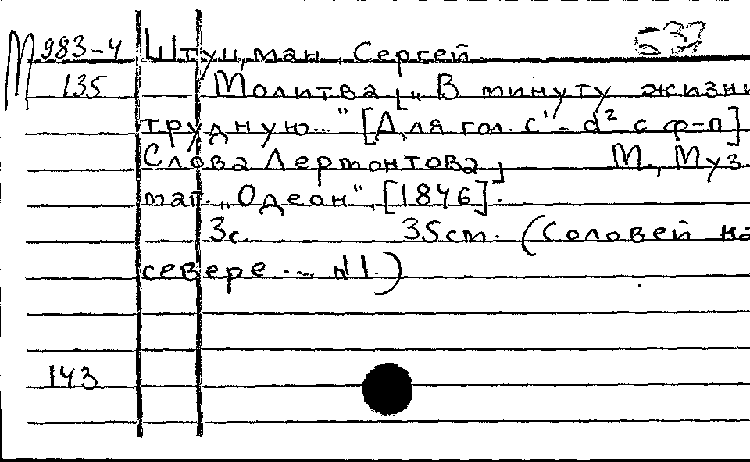 М 983-4 Штуцман, Сергей 637
135 Молитва „В минуту жизни
трудную..." [Для гол. c¹-d² с ф-п]
Слова Лермонтова, М., Муз.
маг. „Одеон", [1846].
3с. 35cm. (Соловей на
севере.– №1.)
143